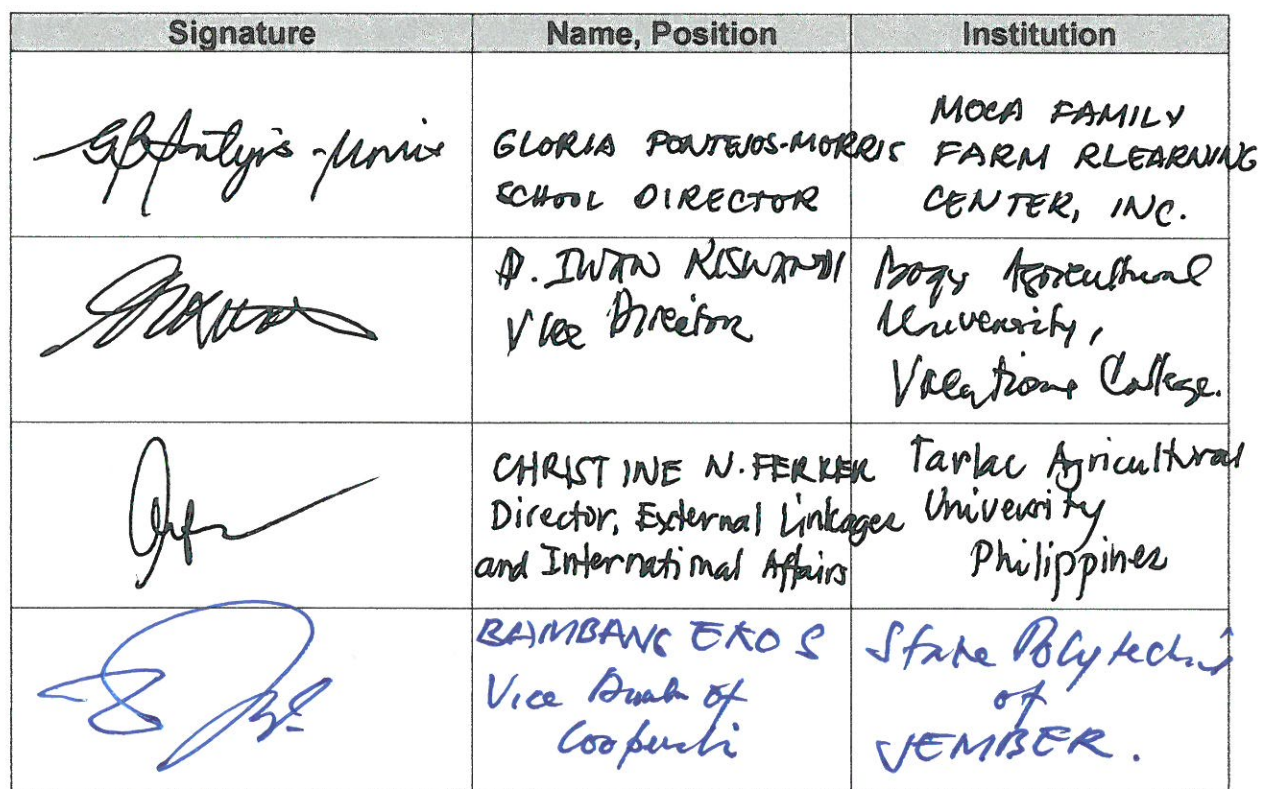 Signature Name, Position Institution
GLORIA PONTEJOS-MORRIS
SCHOOL DIRECTOR
MOCA FAMILY
FARM RLEARNING
CENTER, INC.
D. IWAN RISWANDI
Vice Director
Agricultural
University,
College.
CHRISTINE N. FERRER
Director, External Linkages
and International Affairs
Tarlac Agricultural
University
Philippines
BAMBANG EKO S
Vice
of
State Polytechnic
of
JEMBER.